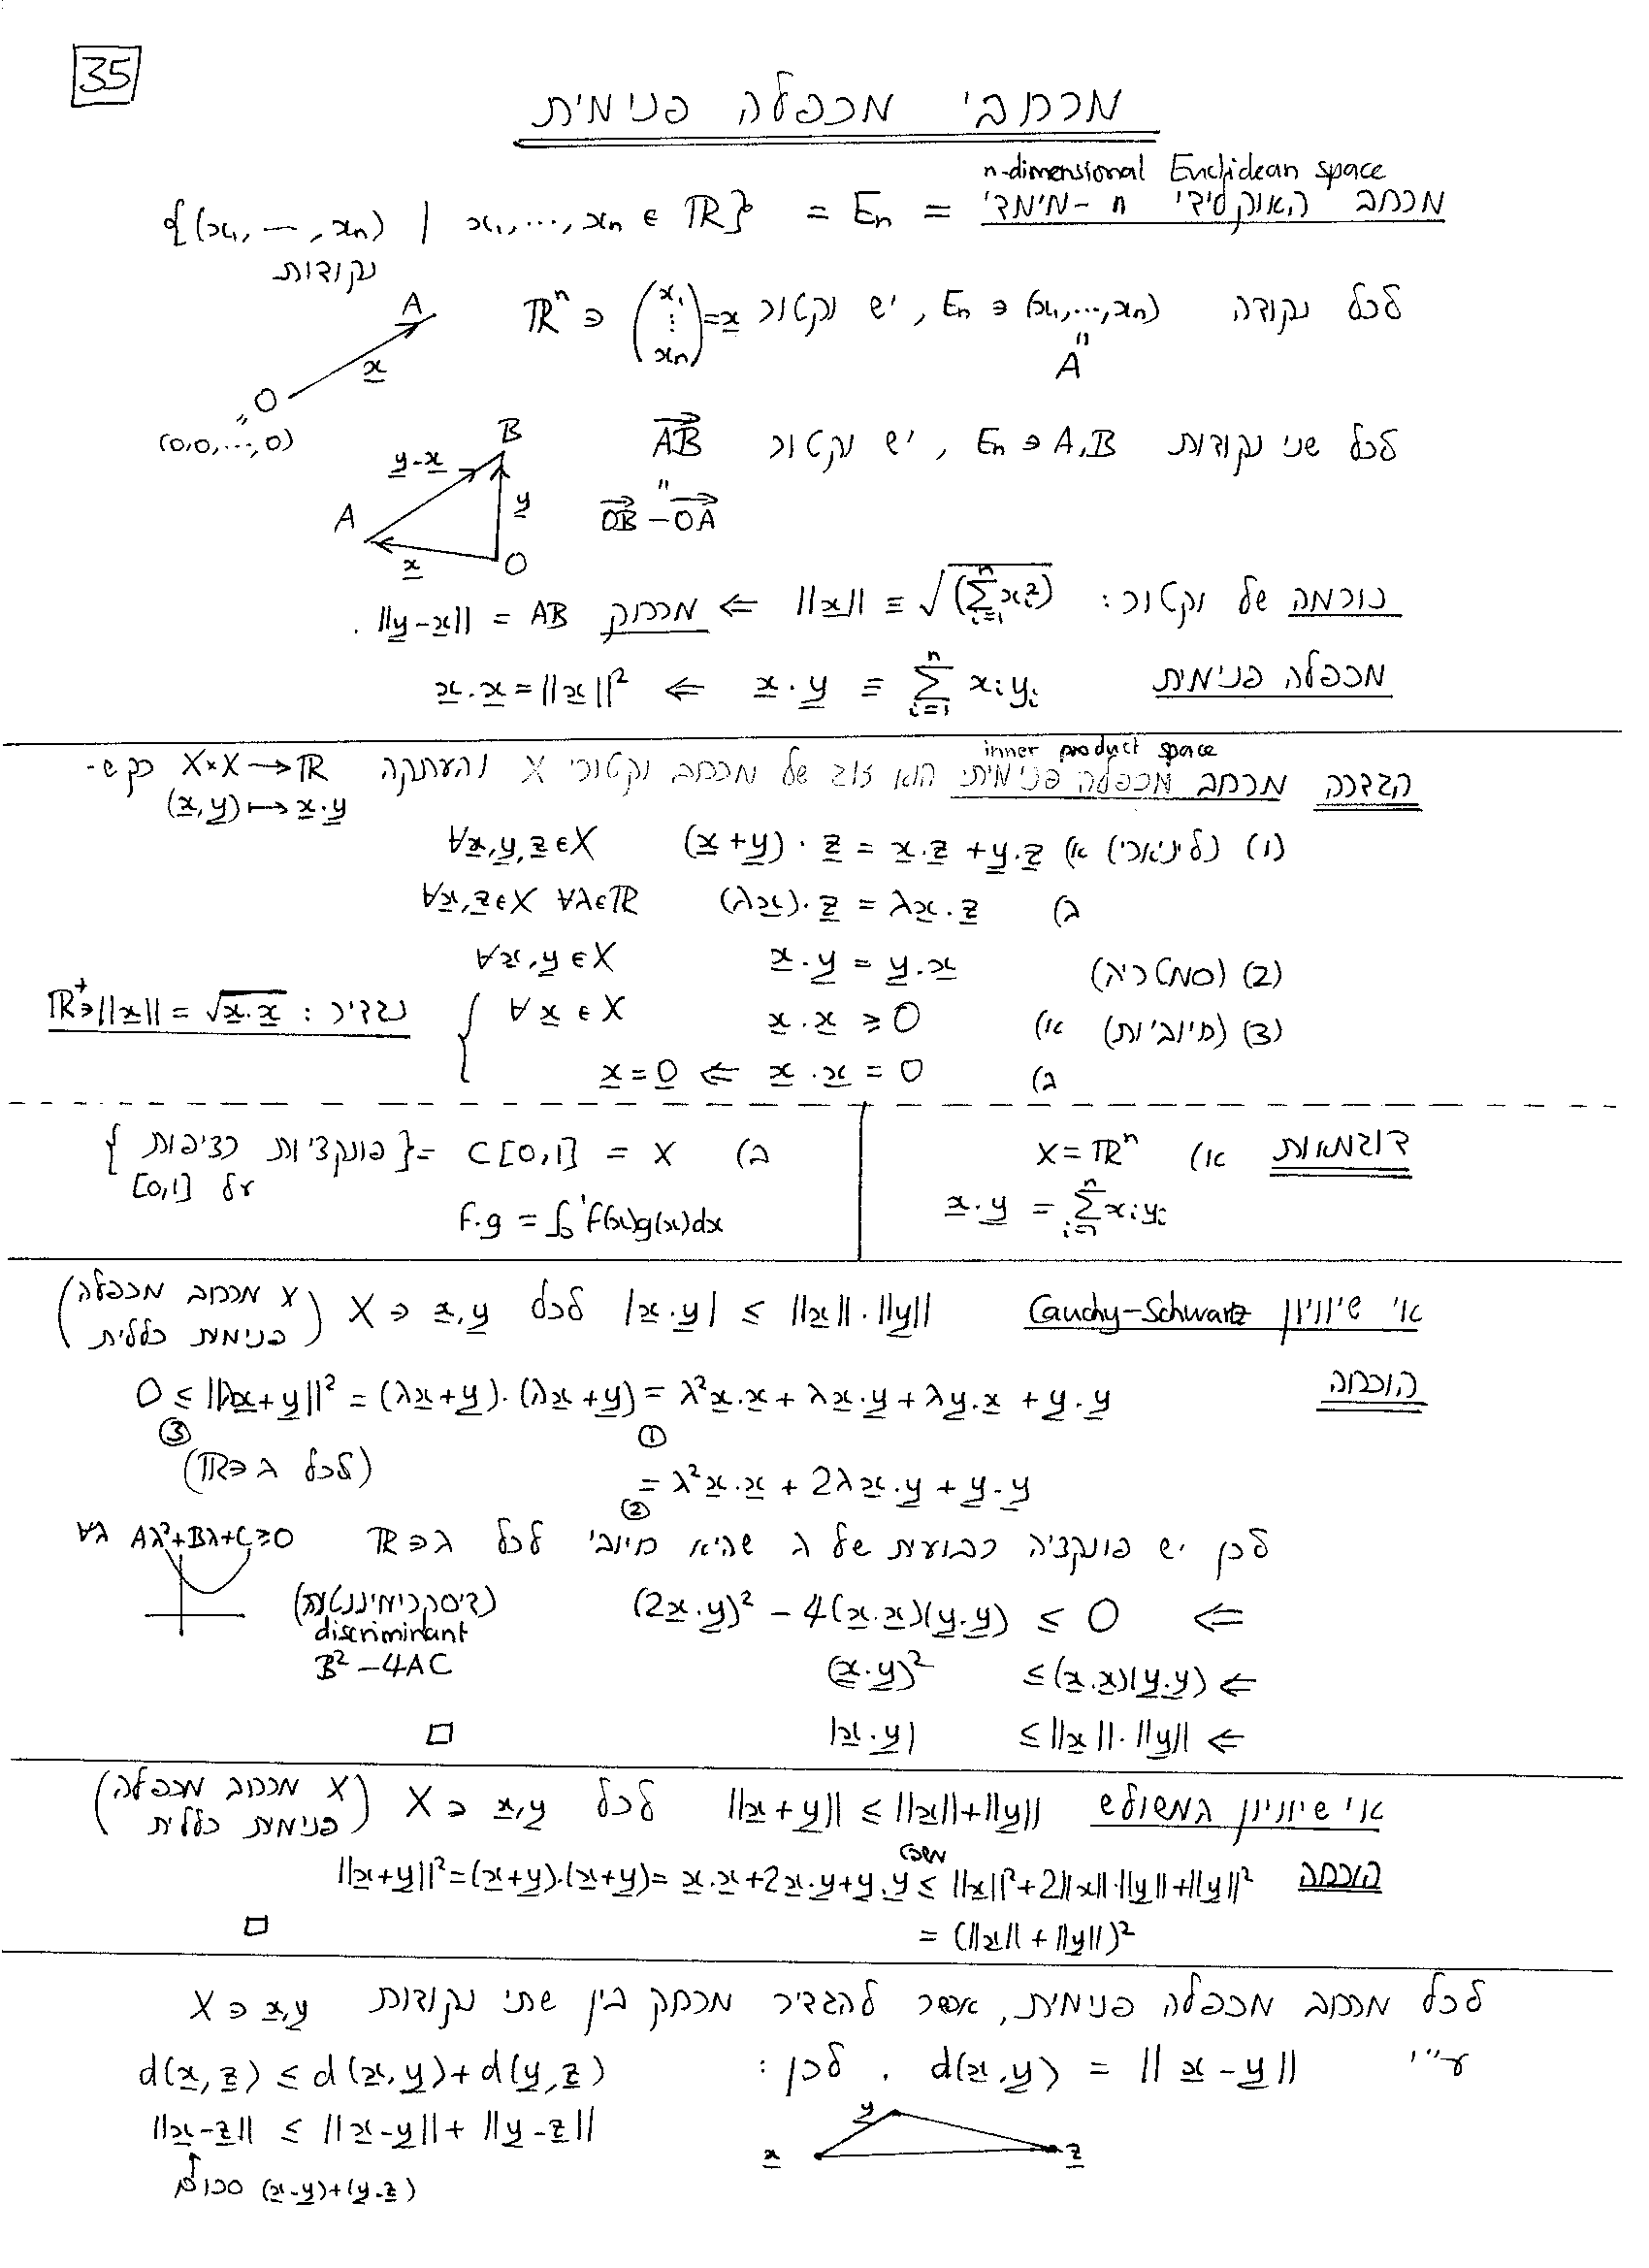 35
מרחבי מכפלה פנימית
n-dimensional Euclidean space
מרחב האוקלידי n-מימדי = Eₙ = {(x₁,—,xₙ) | x₁,...,xₙ ∈ ℝ}
נקודות
לכל נקודה (x₁,...,xₙ) ∈ Eₙ, יש וקטור x = (x₁ ⋮ xₙ) ∈ ℝⁿ
A"
A
x
O
"
(0,0,...,0)
לכל שני נקודות A,B ∈ Eₙ, יש וקטור AB
"
OB - OA
B
y-x
y
A
x
O
נורמה של וקטור: ||x|| ≡ √(Σᵢ₌₁ⁿ xᵢ²) ⇐ מרחק AB = ||y-x||.
מכפלה פנימית x·y ≡ Σᵢ₌₁ⁿ xᵢyᵢ ⇐ x·x = ||x||²
inner product space
הגדרה מרחב מכפלה פנימיתי הוא זוג של מרחב וקטורי X והעתקה X×X → ℝ כך ש-
(x,y) ↦ x·y
(1) (לינארי) א) (x+y)·z = x·z + y·z ∀x,y,z∈X
ב) (λx)·z = λx·z ∀x,z∈X ∀λ∈ℝ
(2) (סמטריה) x·y = y·x ∀x,y∈X
(3) (חיוביות) א) x·x ≥ 0 ∀x∈X
נגדיר: ℝ⁺∋||x|| = √x·x
ב) x·x = 0 ⇐ x = 0
דוגמאות א) X = ℝⁿ
x·y = Σᵢ₌₁ⁿ xᵢyᵢ
ב) X = C[0,1] = {פונקציות רציפות
על [0,1]}
f·g = ∫₀¹ f(x)g(x)dx
אי שיוויון Cauchy-Schwartz |x·y| ≤ ||x||·||y|| לכל x,y ∈ X (X מרחב מכפלה
פנימית כללית)
הוכחה 0 ≤ ||λx+y||² = (λx+y)·(λx+y) = λ²x·x + λx·y + λy·x + y·y
③ ①
(לכל λ∈ℝ) = λ²x·x + 2λx·y + y·y
②
לכן יש פונקציה רבועית של λ שהיא חיובי לכל λ∈ℝ
∀λ Aλ²+Bλ+C≥0
⇐ (2x·y)² - 4(x·x)(y·y) ≤ 0
discriminant
B² - 4AC
⇐ (x·y)² ≤ (x·x)(y·y)
⇐ |x·y| ≤ ||x||·||y|| □
אי שיוויון המשולש ||x+y|| ≤ ||x||+||y|| לכל x,y ∈ X (X מרחב מכפלה
פנימית כללית)
הוכחה ||x+y||² = (x+y)·(x+y) = x·x+2x·y+y·y ≤ ||x||²+2||x||·||y||+||y||²
= (||x||+||y||)² □
לכל מרחב מכפלה פנימית, אפשר להגדיר מרחק בין שתי נקודות x,y ∈ X
ע"י d(x,y) = ||x-y||. לכן: d(x,z) ≤ d(x,y)+d(y,z)
||x-z|| ≤ ||x-y|| + ||y-z||
סכום (x-y)+(y-z)
y
x
z